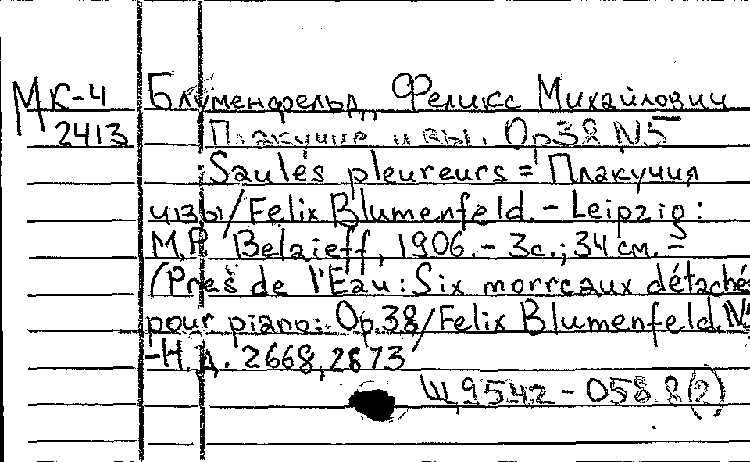 МК-4 Блуменфельд, Феликс Михайлович
2413 Плакучие ивы. Op38 N5
Saules pleureurs = Плакучия
ивы/Felix Blumenfeld. - Leipzig:
M.P. Belaieff, 1906. - 3с.; 34 см. -
(Près de l'Eau: Six morceaux détaché
pour piano: Op.38/Felix Blumenfeld. N5
-Н.Д. 2668, 2873
Щ 9542 - 058.8(2)